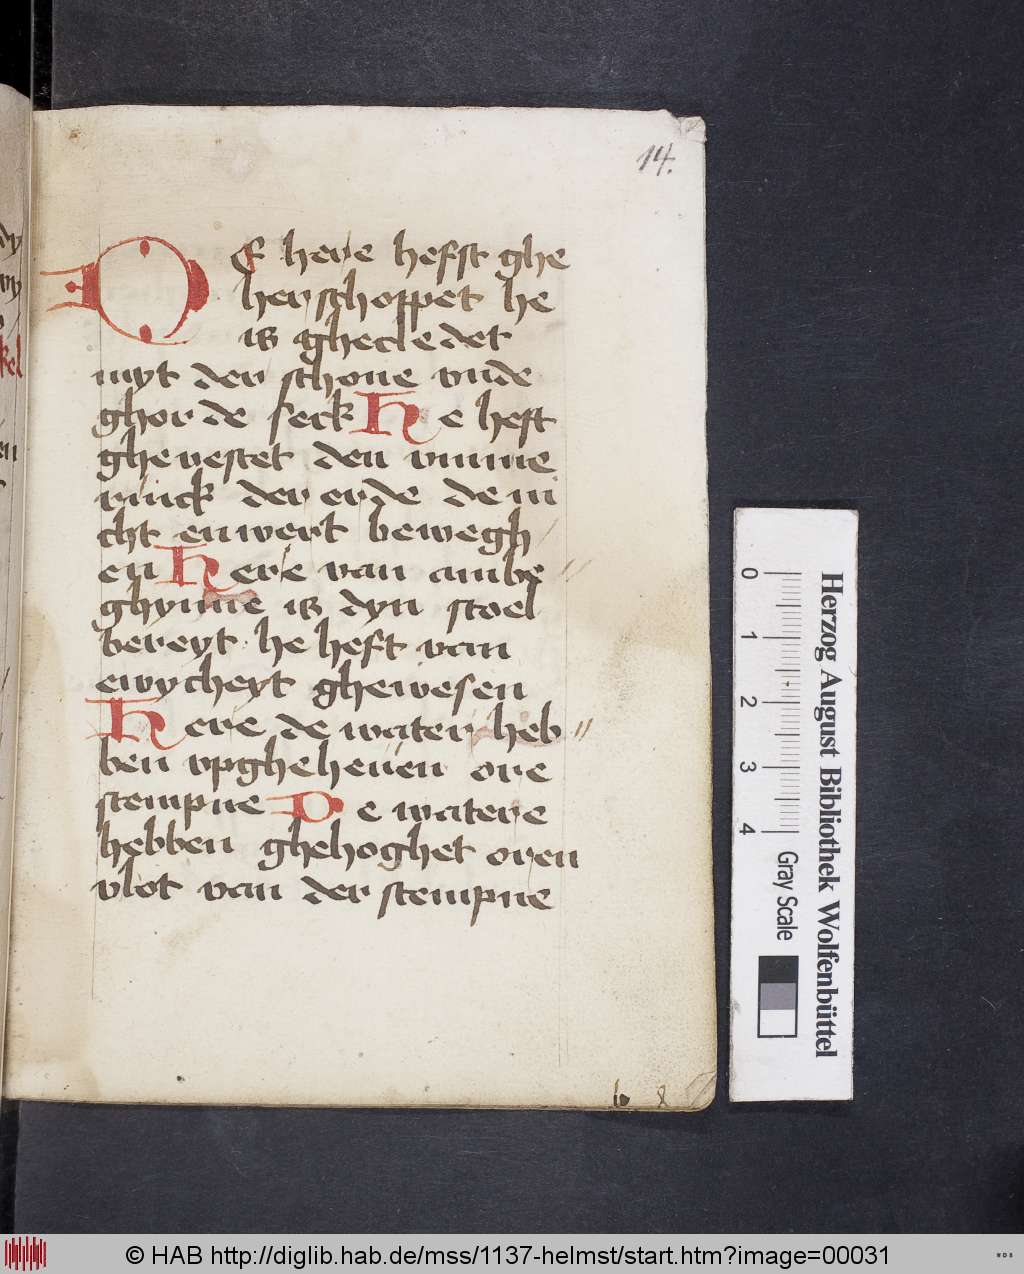 14.
DE here hefst ghe
herschoppet he
is ghecledet
myt der schone vnde
ghorde serk He heft
ghevestet den vmme
rinck der erde de ni
cht enwert bewegh
en Here van ambe
ghynne is dyn stoel
bereyt he heft van
ewycheyt ghewesen
Here de water heb
ben vpgheheuen ore
stempne De watere
hebben ghehoghet oren
vlot van der stempne
b 8
0 1 2 3 4
Herzog August Bibliothek Wolfenbüttel
Gray Scale
© HAB http://diglib.hab.de/mss/1137-helmst/start.htm?image=00031